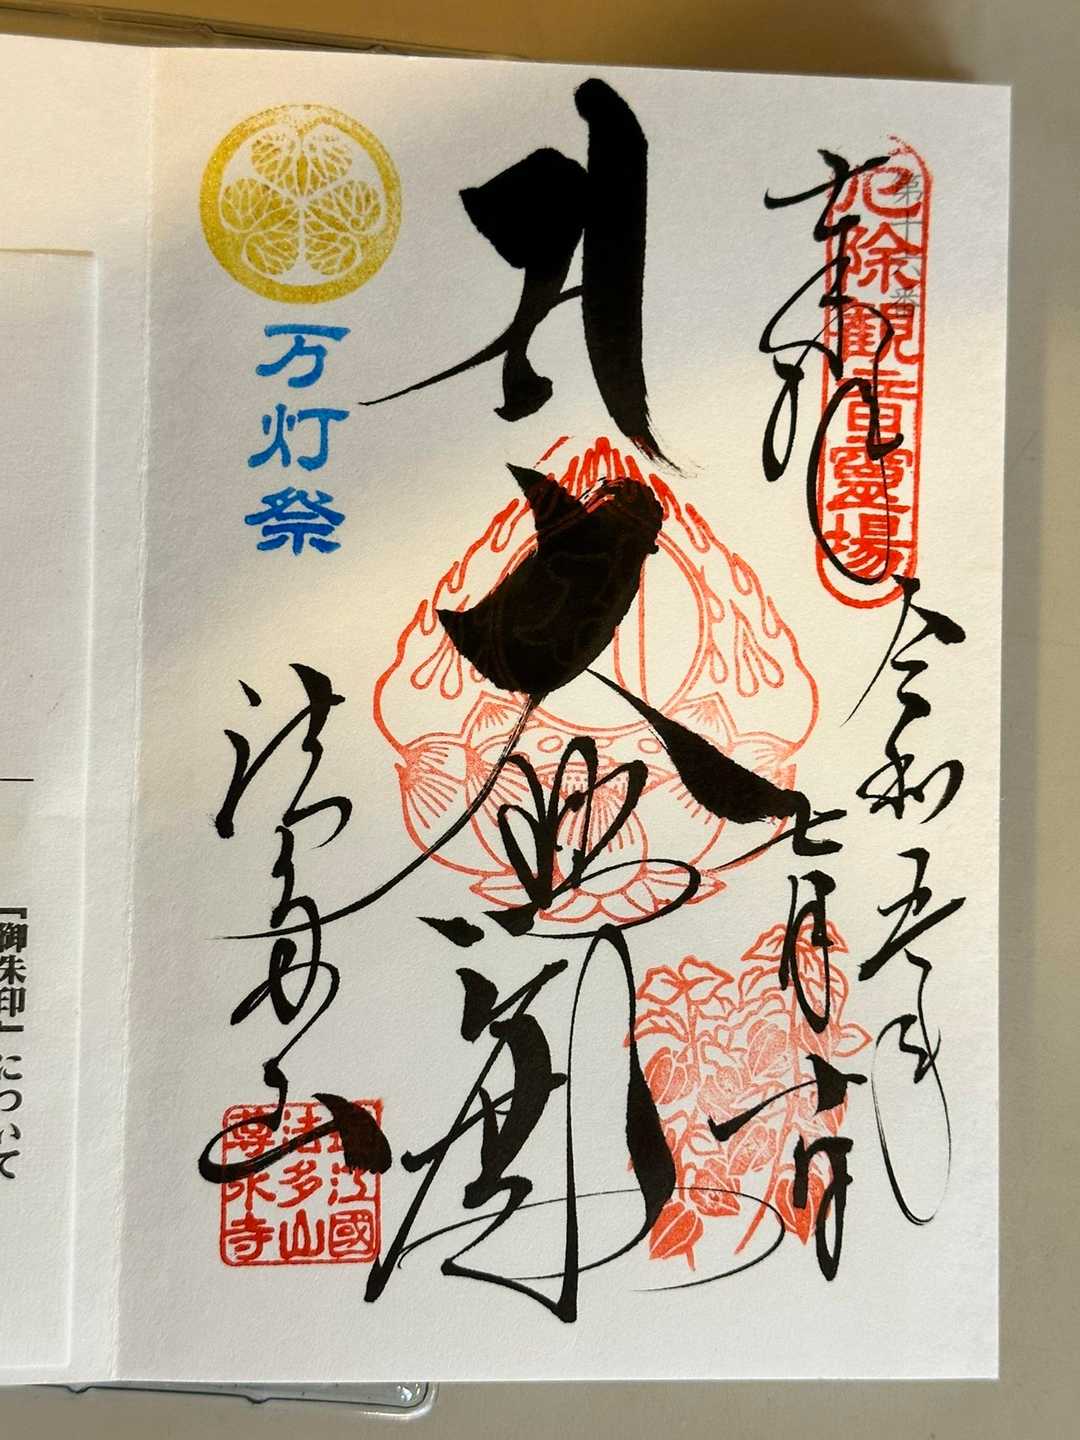 奉拝
厄除観音霊場
令和五年
七月十日
大悲閣
万灯祭
法多山
遠江國
法多山
尊永寺
『御朱印』について